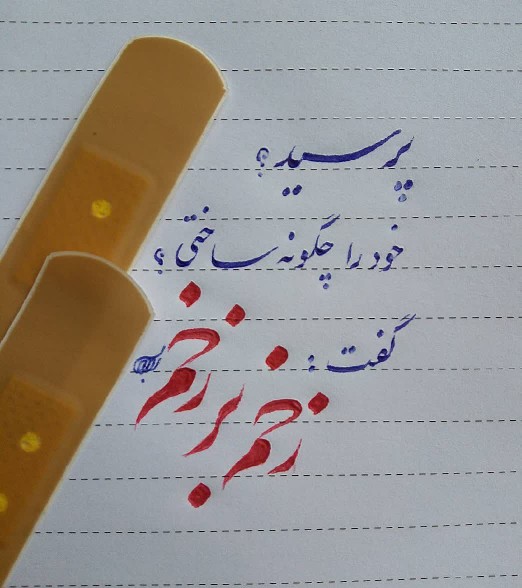 پرسید؟
خود را چگونه ساختی؟
گفت:
زخم بر زخم